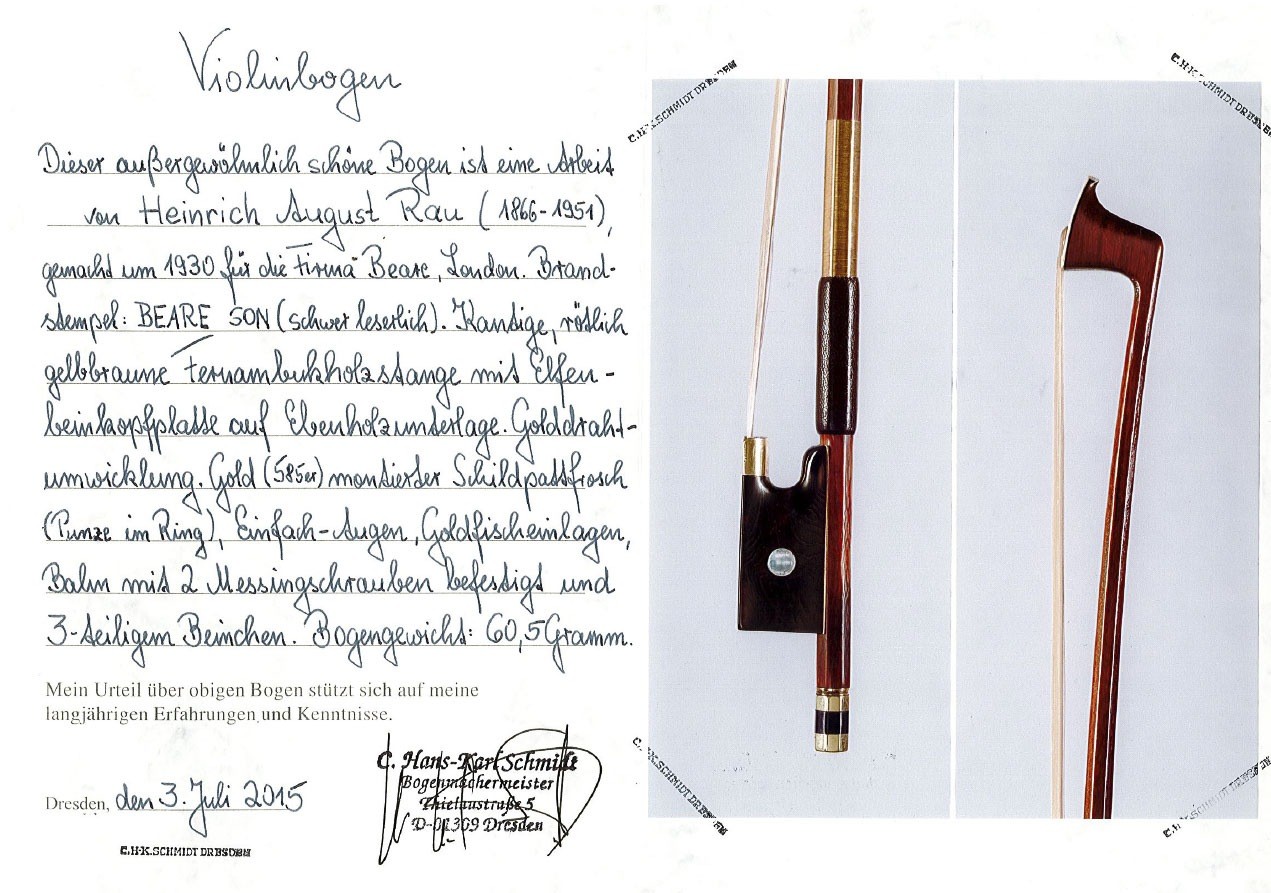 Violinbogen
Dieser außergewöhnlich schöne Bogen ist eine Arbeit
von Heinrich August Rau (1866-1951),
gemacht um 1930 für die Firma Beare, London. Brand-
stempel: BEARE SON (schwer leserlich). Kantige, rötlich
gelbbraune Fernambukholzstange mit Elfen-
beinkopfplatte auf Ebenholzunterlage. Golddraht-
umwicklung. Gold (585er) montierter Schildpattfrosch
(Punze im Ring), Einfach-Augen, Goldfischeinlagen,
Bahn mit 2 Messingschrauben befestigt und
3-teiligem Beinchen. Bogengewicht: 60,5 Gramm.
Mein Urteil über obigen Bogen stützt sich auf meine
langjährigen Erfahrungen und Kenntnisse.
Dresden, den 3. Juli 2015
C. Hans-Karl Schmidt
Bogenmachermeister
Thielaustraße 5
D-01309 Dresden
C.H-K.SCHMIDT DRESDEN
C.H-K.SCHMIDT DRESDEN
C.H-K.SCHMIDT DRESDEN
C.H-K.SCHMIDT DRESDEN
C.H-K.SCHMIDT DRESDEN